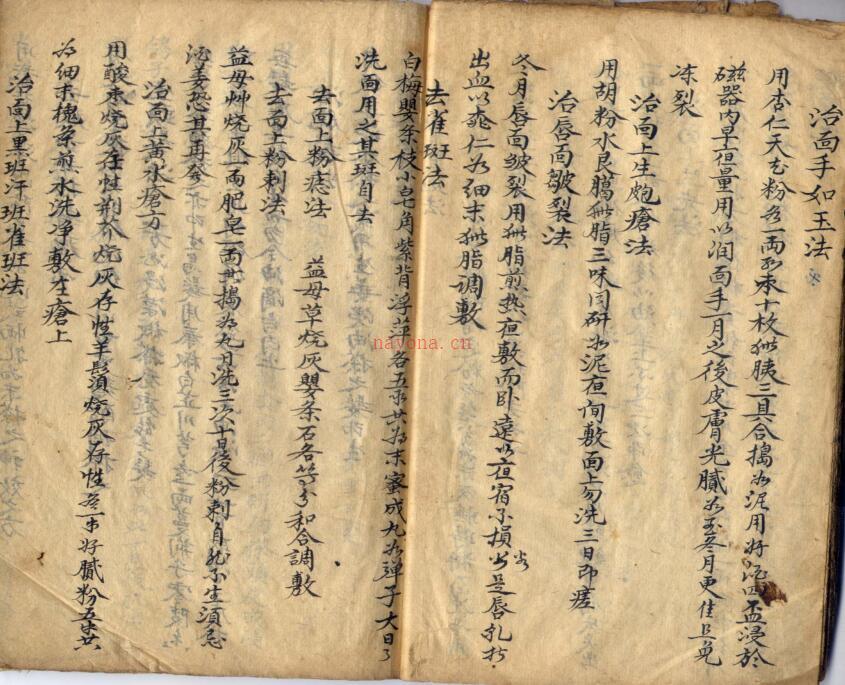 治面手如玉法
用杏仁天花粉各一兩红枣十枚猪胰三具合搗如泥用好酒四盃浸於
磁器内早但量用以润面手一月之後皮膚光膩如玉冬月更佳且免
冻裂
治面上生皰瘡法
用胡粉水艮臈猪脂三味同研如泥夜间敷面上勿洗三日即瘥
治唇面皴裂法
冬月唇面皴裂用猪脂煎热夜敷而卧遠以夜宿不損若是唇孔折
出血以桃仁为細末猪脂調敷
去雀斑法
白梅嬰条枝小皂角紫背浮萍各五錢共为末蜜成丸如弹子大日日
洗面用之其斑自去
去面上粉痣法 益母草烧灰嬰条石各等分和合調敷
去面上粉刺法
益母艸烧灰一兩肥皂一兩共搗为丸日洗三次十日後粉刺自然不生須忌
酒姜恐其再發
治面上黄水瘡方
用酸枣烧灰存性荆芥烧灰存性羊鬚烧灰存性各一錢好膩粉五錢共
为細末槐条煎水洗净敷在瘡上
治面上黑斑汗班雀班法
nayona.cn